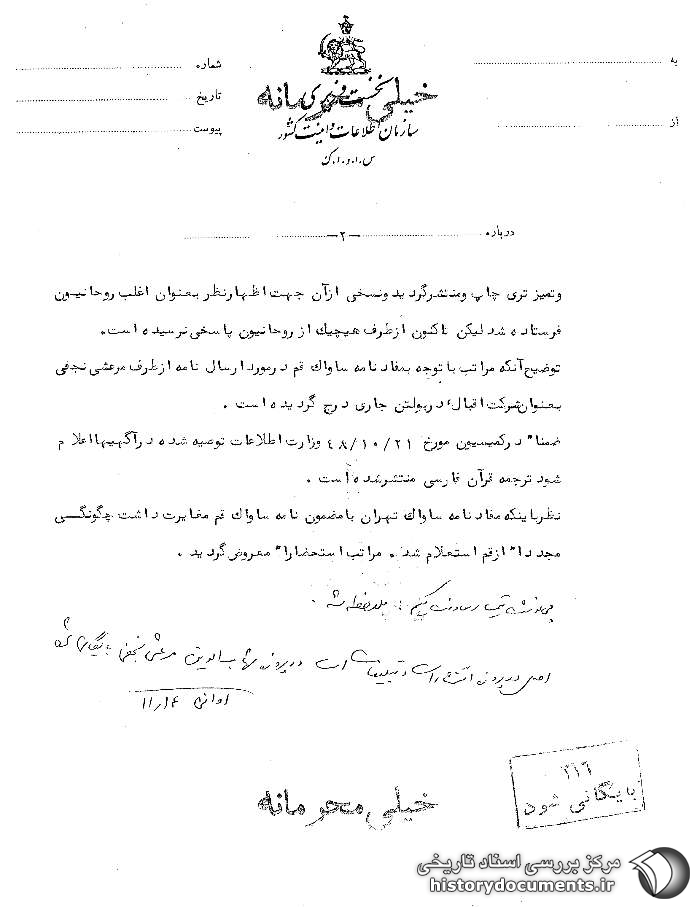 به
شماره
خیلی محرمانه
نخست وزیری
تاریخ
سازمان اطلاعات و امنیت کشور
از
پیوست
س.ا.و.ا.ک
درباره -۲-
وتمیز تری چاپ ومنتشرگردید ونسخی ازآن جهت اظهارنظر بعنوان اغلب روحانیون
فرستاده شد لیکن تاکنون ازطرف هیچیک از روحانیون پاسخی نرسیده است.
توضیح آنکه مراتب با توجه بمفاد نامه ساواک قم درمورد ارسال نامه ازطرف مرعشی نجفی
بعنوان شرکت اقبال، دربولتن جاری درج گردیده است .
ضمنا" درکمیسیون مورخ ۴۸/۱۰/۲۱ وزارت اطلاعات توصیه شده درآگهیهااعلام
شود ترجمه قرآن فارسی منتشرشده است .
نظرباینکه مفاد نامه ساواک تهران بامضمون نامه ساواک قم مغایرت داشت چگونگی
مجددا" ازقم استعلام شد . مراتب استحضارا" معروض گردید .
اصل در پرونده انتشارات و تبلیغات است در پرونده شهاب الدین مرعشی نجفی بایگانی
۱۱/۱۴
۳۱۶
بایگانی شود
خیلی محرمانه
مرکز بررسی اسناد تاریخی
historydocuments.ir